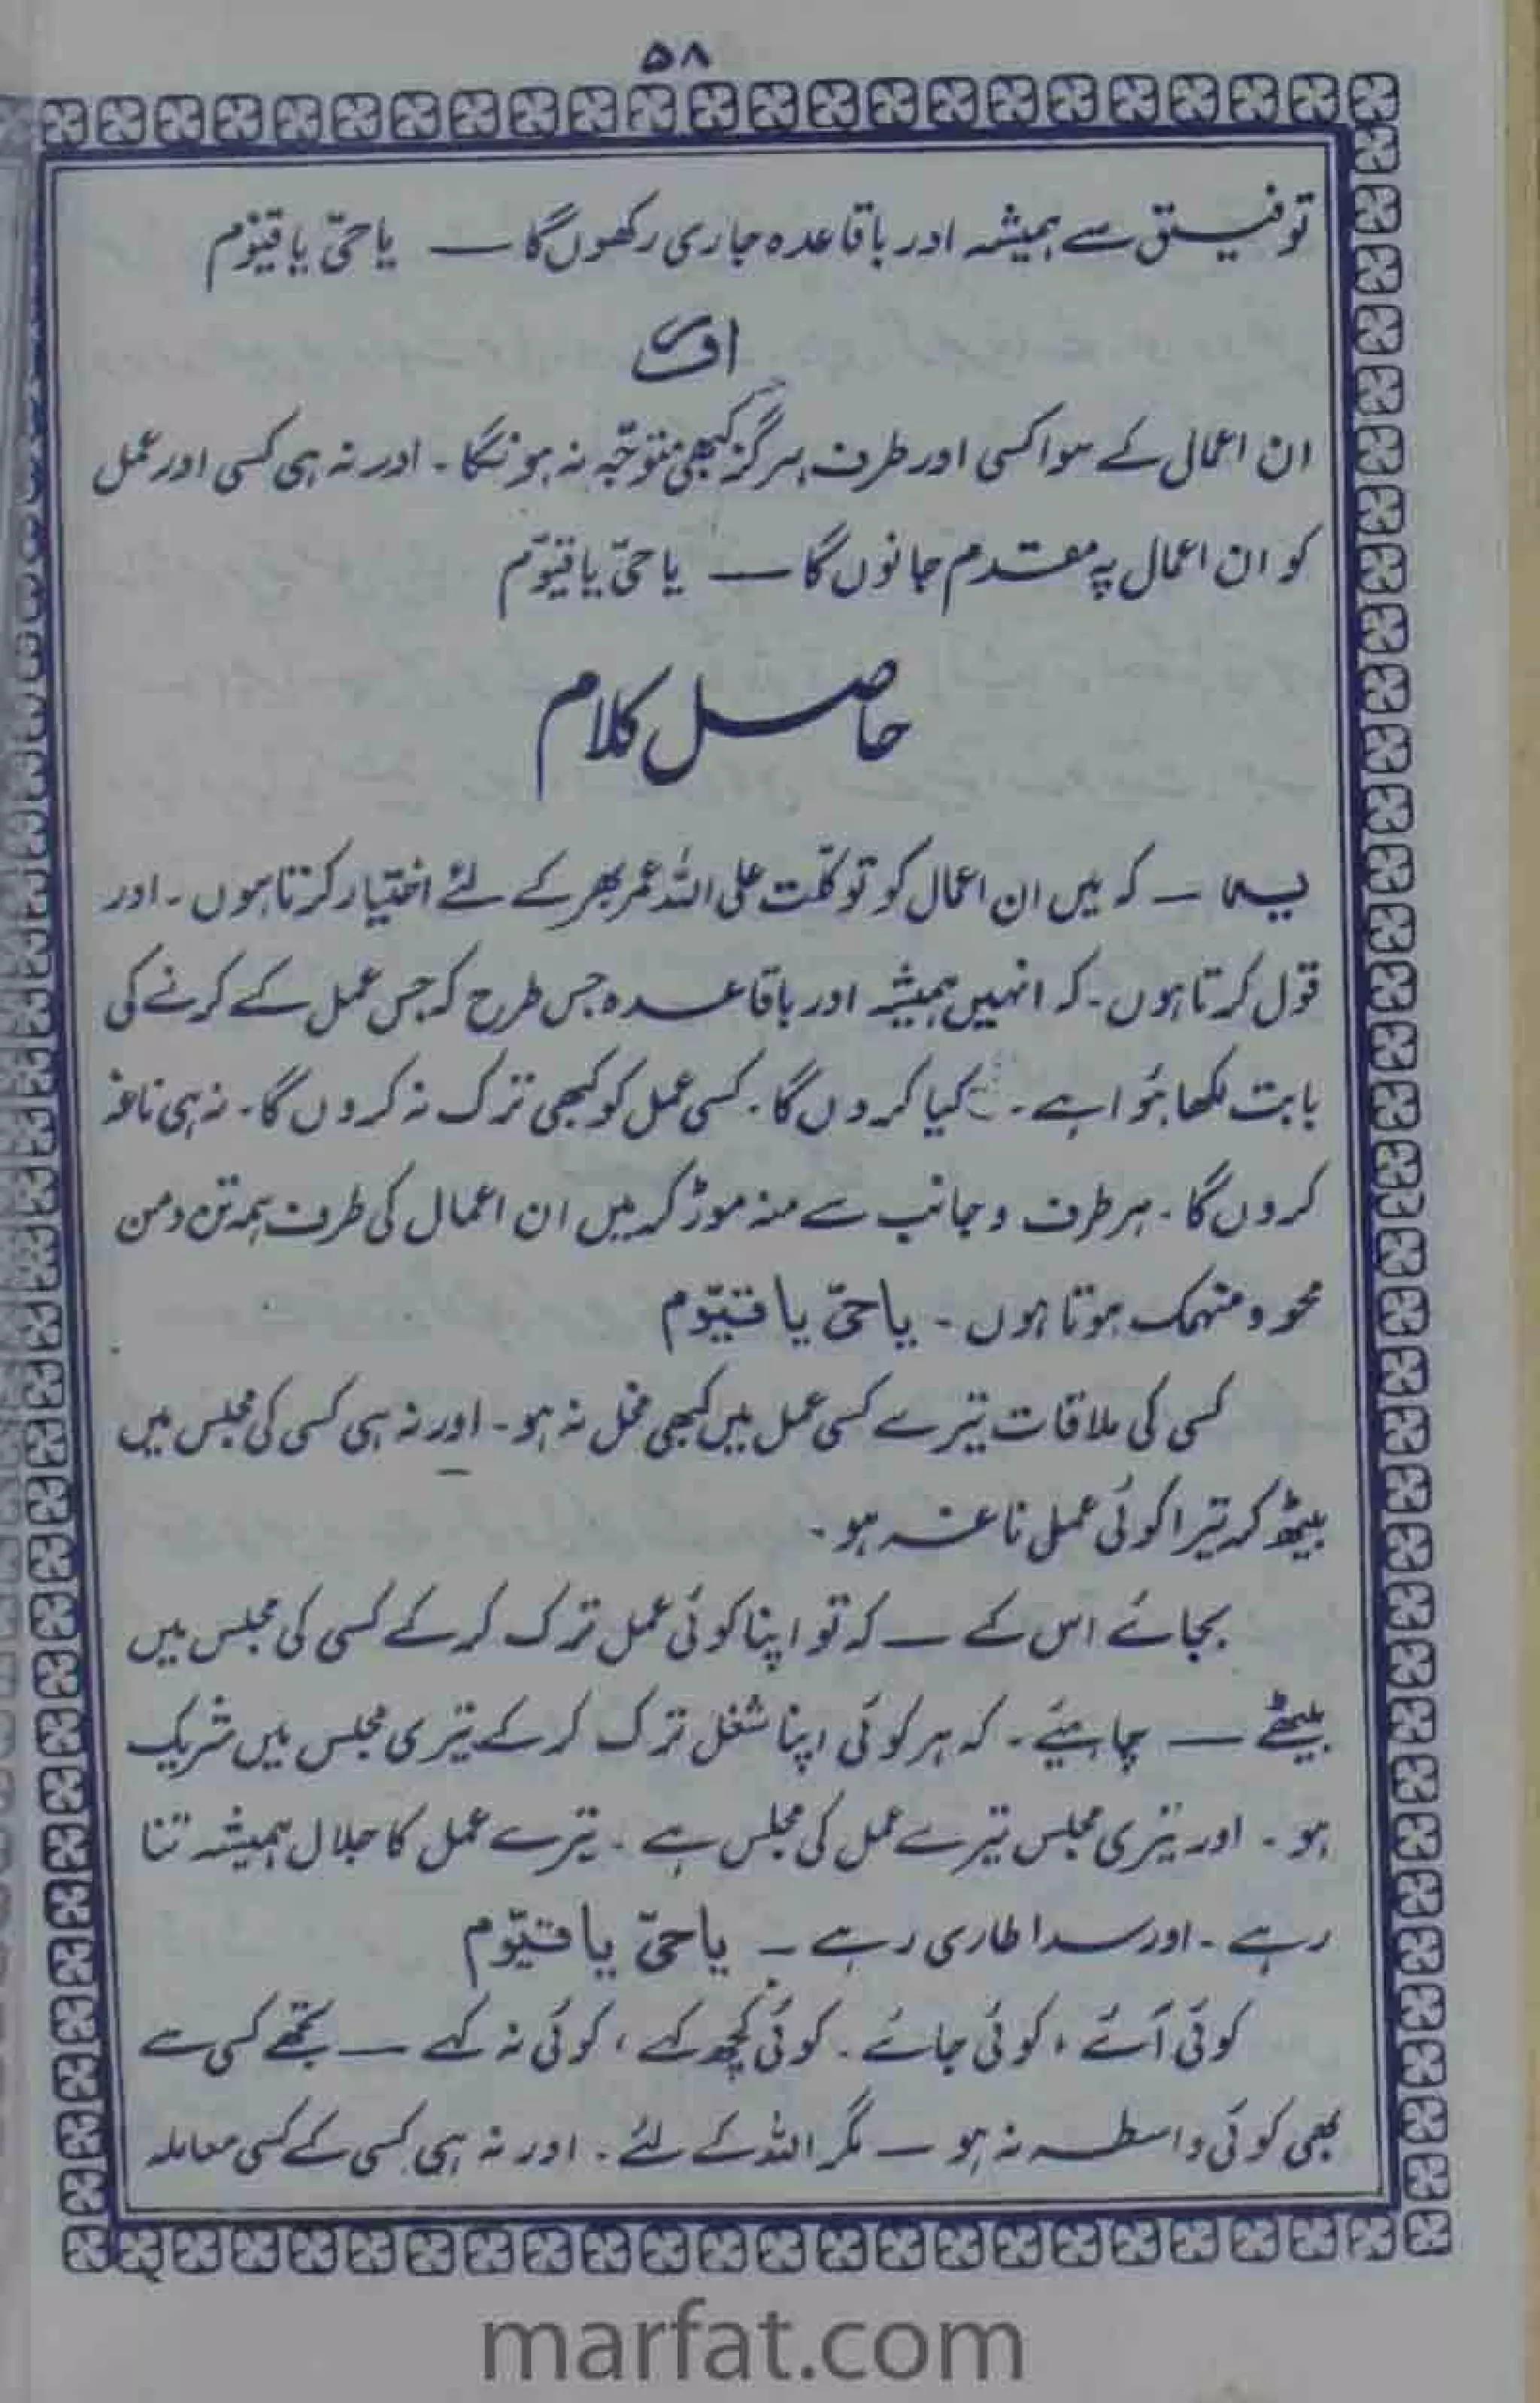 ۵۸
توفیق سے ہمیشہ اور باقاعدہ جاری رکھوں گا — یا حیّ یا قیّوم
اور
ان اعمال کے سوا کسی اور طرف ہرگز کبھی متوجّہ نہ ہونگا ۔ اور نہ ہی کسی اور عمل
کو ان اعمال پہ مقدم جانوں گا — یا حیّ یا قیّوم
حاصل کلام
یہ — کہ میں ان اعمال کو توکّلت علی اللہ عمر بھر کے لئے اختیار کرتا ہوں ۔ اور
قول کرتا ہوں ۔ کہ انہیں ہمیشہ اور باقاعدہ جس طرح کہ جس عمل کے کرنے کی
بابت لکھا ہُوا ہے ۔ کیا کروں گا ۔ کسی عمل کو کبھی ترک نہ کروں گا ۔ نہ ہی ناغہ
کروں گا ۔ ہر طرف و جانب سے منہ موڑ کر میں ان اعمال کی طرف ہمہ تن و من
محو و منہمک ہوتا ہوں ۔ یا حیّ یا قیّوم
کسی کی ملاقات تیرے کسی عمل میں کبھی مخل نہ ہو ۔ اور نہ ہی کسی کی مجلس میں
بیٹھ کر تیرا کوئی عمل ناغہ ہو ۔
بجائے اس کے — کہ تو اپنا کوئی عمل ترک کر کے کسی کی مجلس میں
بیٹھے — چاہیئے ۔ کہ ہر کوئی اپنا شغل ترک کر کے تیری مجلس میں شریک
ہو ۔ اور تیری مجلس تیرے عمل کی مجلس ہے ۔ تیرے عمل کا جلال ہمیشہ تنا
رہے ۔ اور سدا طاری رہے — یا حیّ یا قیّوم
کوئی آئے ، کوئی جائے ۔ کوئی کچھ کہے ، کوئی نہ کہے — تجھے کسی سے
بھی کوئی واسطہ نہ ہو — مگر اللہ کے لئے ۔ اور نہ ہی کسی کے کسی معاملہ
marfat.com